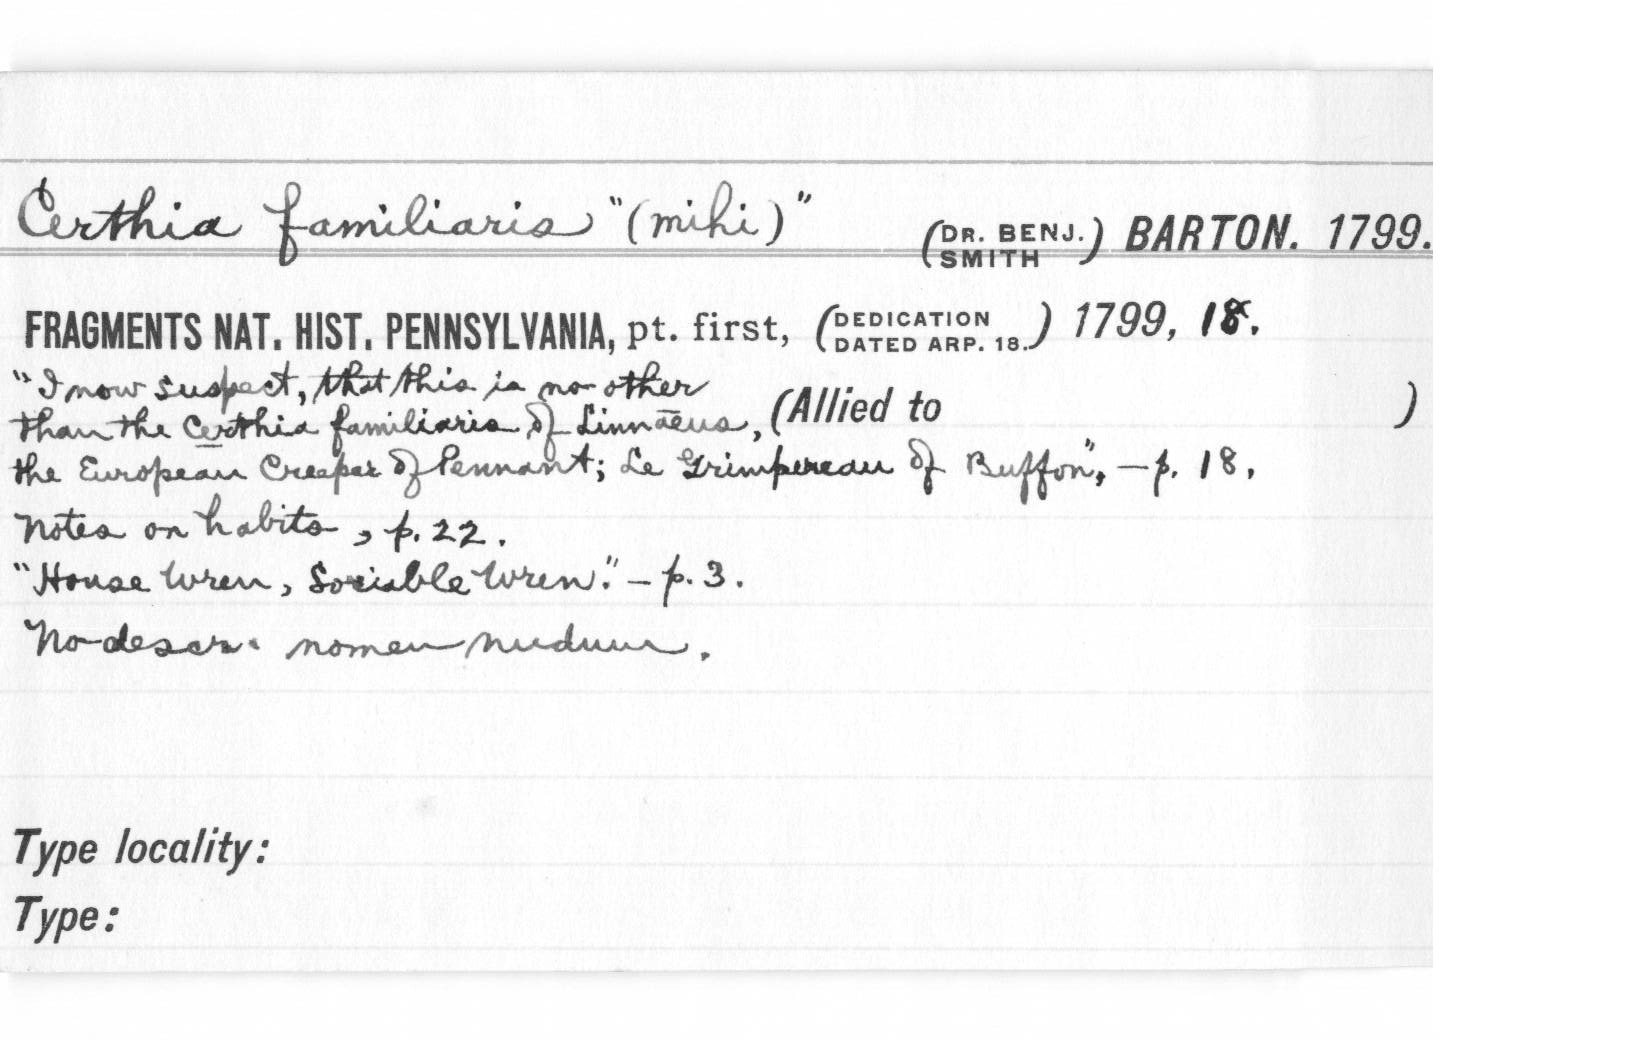 Certhia familiaris "(mihi)" (DR. BENJ. SMITH) BARTON. 1799.
FRAGMENTS NAT. HIST. PENNSYLVANIA, pt. first, (DEDICATION DATED ARP. 18.) 1799, 18.
"I now suspect, that this is no other
than the Certhia familiaris of Linnæus, (Allied to )
the European Creeper of Pennant; Le Grimpereau of Buffon", — p. 18.
Notes on habits, p. 22.
"House Wren, Sociable Wren." — p. 3.
No descr. nomen nudum.
Type locality:
Type: